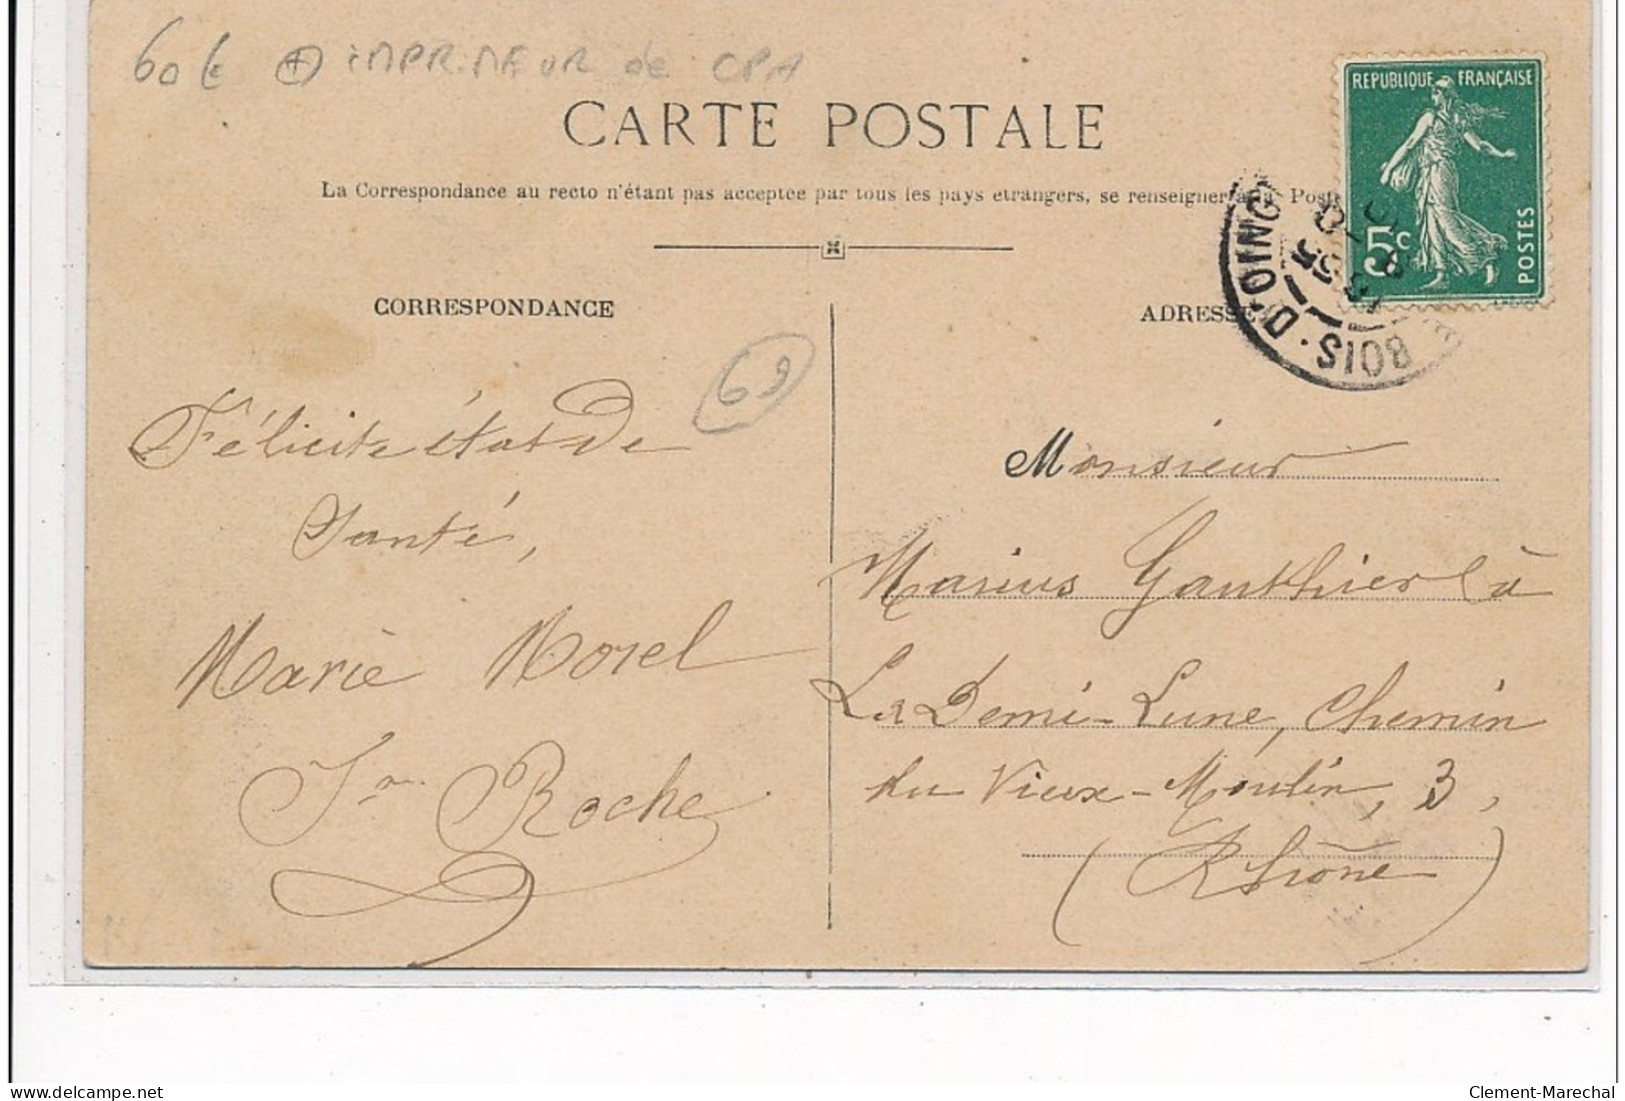 60 € + imprimeur de CPA
CARTE POSTALE
La Correspondance au recto n'étant pas acceptée par tous les pays étrangers, se renseigner à la Post
CORRESPONDANCE
ADRESSE
RÉPUBLIQUE FRANÇAISE
5c
POSTES
BOIS-D'OINGT
69
Félicite état de
Santé,
Marie Morel
Roche
Monsieur
Marius Gauthier à
La Demi-Lune, Chemin
du Vieux-Moulin, 3,
(Rhône)
Clement-Marechal